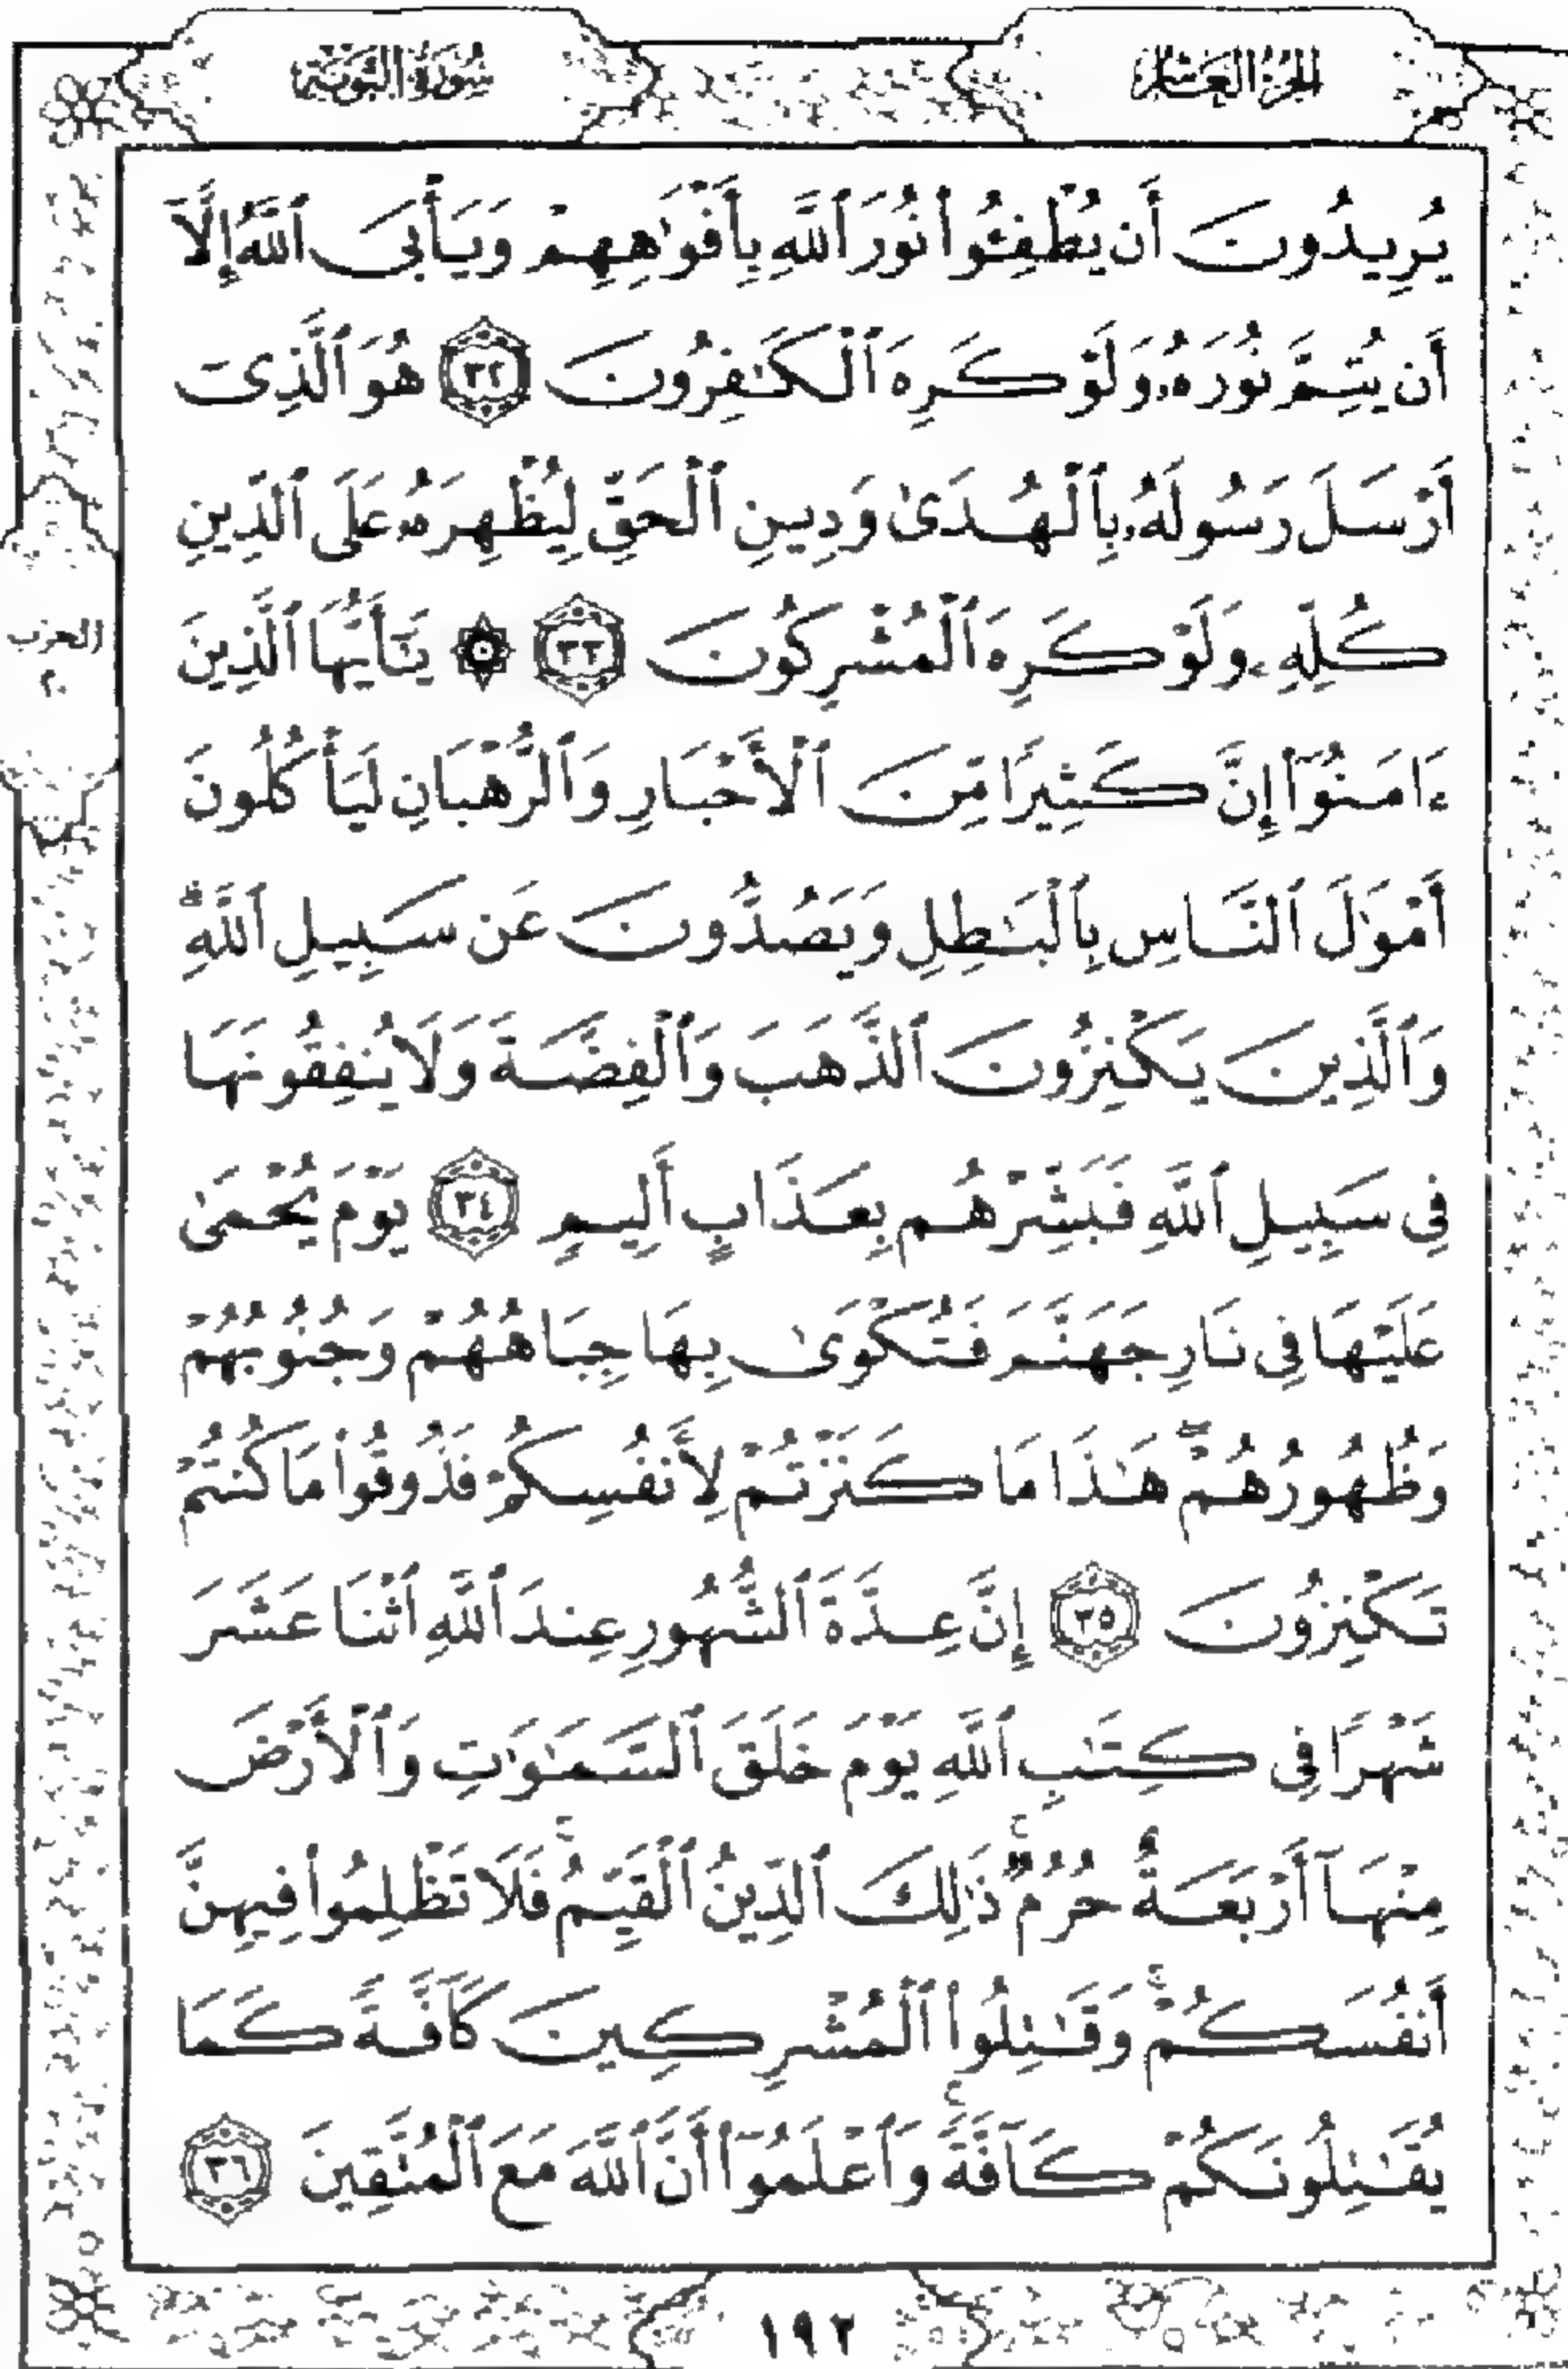 الجزء العاشر
سورة التوبة
يُرِيدُونَ أَن يُطْفِـُٔوا۟ نُورَ ٱللَّهِ بِأَفْوَٰهِهِمْ وَيَأْبَى ٱللَّهُ إِلَّآ
أَن يُتِمَّ نُورَهُۥ وَلَوْ كَرِهَ ٱلْكَـٰفِرُونَ ٣٢ هُوَ ٱلَّذِىٓ
أَرْسَلَ رَسُولَهُۥ بِٱلْهُدَىٰ وَدِينِ ٱلْحَقِّ لِيُظْهِرَهُۥ عَلَى ٱلدِّينِ
كُلِّهِۦ وَلَوْ كَرِهَ ٱلْمُشْرِكُونَ ٣٣ ۞ يَـٰٓأَيُّهَا ٱلَّذِينَ
ءَامَنُوٓا۟ إِنَّ كَثِيرًا مِّنَ ٱلْأَحْبَارِ وَٱلرُّهْبَانِ لَيَأْكُلُونَ
أَمْوَٰلَ ٱلنَّاسِ بِٱلْبَـٰطِلِ وَيَصُدُّونَ عَن سَبِيلِ ٱللَّهِ ۗ
وَٱلَّذِينَ يَكْنِزُونَ ٱلذَّهَبَ وَٱلْفِضَّةَ وَلَا يُنفِقُونَهَا
فِى سَبِيلِ ٱللَّهِ فَبَشِّرْهُم بِعَذَابٍ أَلِيمٍ ٣٤ يَوْمَ يُحْمَىٰ
عَلَيْهَا فِى نَارِ جَهَنَّمَ فَتُكْوَىٰ بِهَا جِبَاهُهُمْ وَجُنُوبُهُمْ
وَظُهُورُهُمْ ۖ هَـٰذَا مَا كَنَزْتُمْ لِأَنفُسِكُمْ فَذُوقُوا۟ مَا كُنتُمْ
تَكْنِزُونَ ٣٥ إِنَّ عِدَّةَ ٱلشُّهُورِ عِندَ ٱللَّهِ ٱثْنَا عَشَرَ
شَهْرًا فِى كِتَـٰبِ ٱللَّهِ يَوْمَ خَلَقَ ٱلسَّمَـٰوَٰتِ وَٱلْأَرْضَ
مِنْهَآ أَرْبَعَةٌ حُرُمٌ ۚ ذَٰلِكَ ٱلدِّينُ ٱلْقَيِّمُ ۚ فَلَا تَظْلِمُوا۟ فِيهِنَّ
أَنفُسَكُمْ ۚ وَقَـٰتِلُوا۟ ٱلْمُشْرِكِينَ كَآفَّةً كَمَا
يُقَـٰتِلُونَكُمْ كَآفَّةً ۚ وَٱعْلَمُوٓا۟ أَنَّ ٱللَّهَ مَعَ ٱلْمُتَّقِينَ ٣٦
الحزب
١٩٢